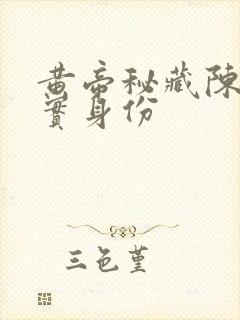 黄帝秘藏陳
實身份
三色堇